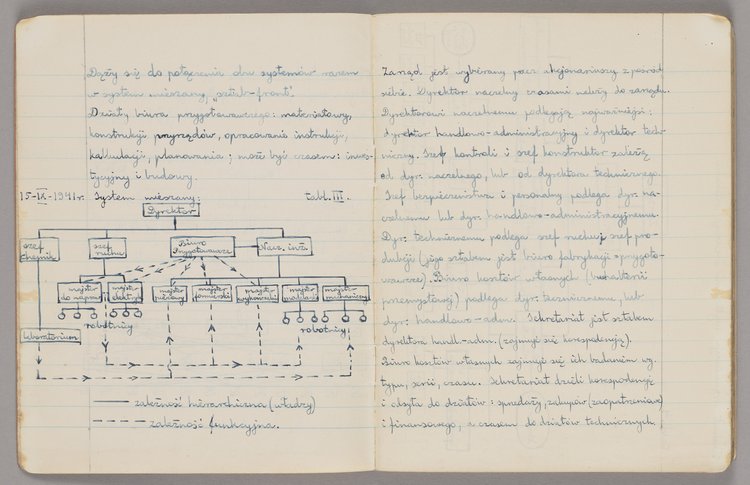 Dąży się do połączenia obu systemów razem
w system mieszany, „sztab-front”.
Działy biura przygotowawczego: materiałowy,
konstrukcji przyrządów, opracowania instrukcji,
kalkulacji, planowania; może być czasem: inwes-
tycyjny i budowy.
15-IX-1941r. System mieszany: tabl. III.
Dyrektor
szef chemik
szef ruchu
Biuro Przygotowawcze
Nacz. inż.
majster do napraw
majster elektryk
majster
majster
majster
majster
majster mechaniczny
robotnicy
robotnicy
Laboratorium
zależność hierarchiczna (władzy)
zależność funkcyjna.
Zarząd jest wybierany przez akcjonariuszy z pośród
siebie. Dyrektor naczelny czasami należy do zarządu.
Dyrektorowi naczelnemu podlegają najważniejsi:
dyrektor handlowo-administracyjny i dyrektor tech-
niczny. Szef kontroli i szef konstruktor zależą
od dyr. naczelnego, lub od dyrektora technicznego.
Szef bezpieczeństwa i personalny podlega dyr. na-
czelnemu lub dyr. handlowo-administracyjnemu.
Dyr. technicznemu podlega szef ruchu, szef pro-
dukcji (jego sztabem jest biuro fabrykacji przygoto-
wawcze). Biuro kosztów własnych (buchalterii
przemysłowej) podlega dyr. technicznemu, lub
dyr. handlowo-adm. Sekretariat jest sztabem
dyrektora handl-adm. (zajmuje się korespondencją).
Biuro kosztów własnych zajmuje się ich badaniem wg.
typu, serii, czasu. Sekretariat dzieli korespondencję
i odsyła do działów: sprzedaży, zakupów (zaopatrzeniowe)
i finansowego, a czasem do działów technicznych.